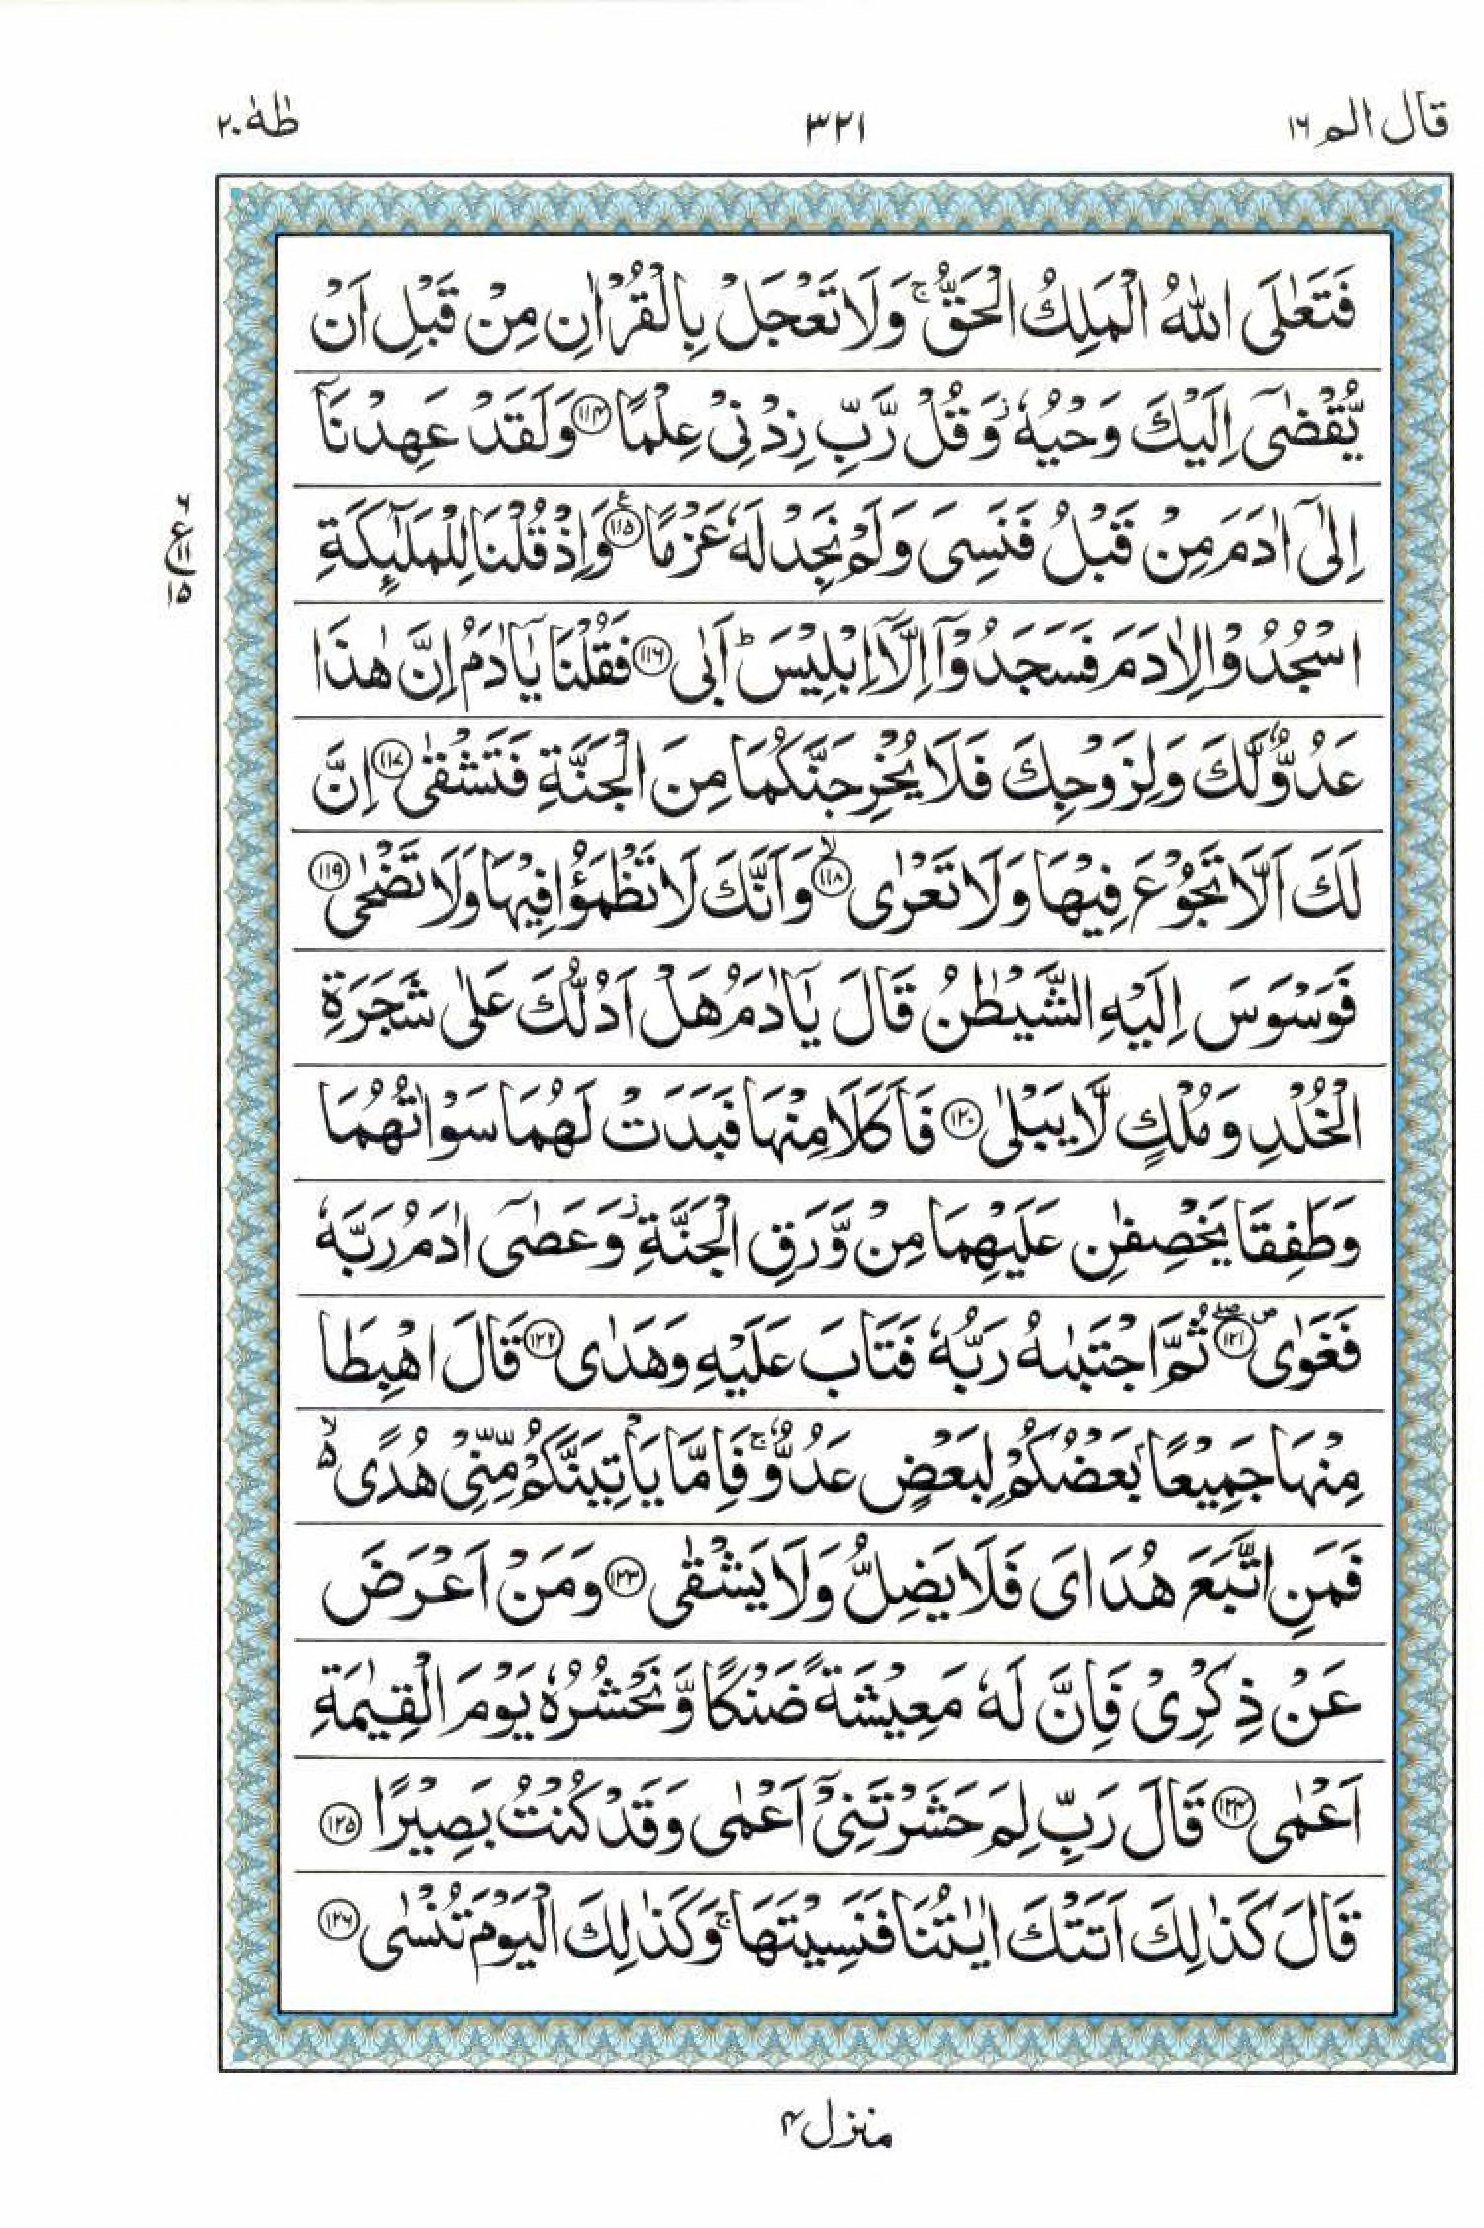 قال الم ١٦
٣٢١
طٰهٰ ٢٠
فَتَعٰلَى اللّٰهُ الْمَلِكُ الْحَقُّ ۚ وَلَا تَعْجَلْ بِالْقُرْاٰنِ مِنْ قَبْلِ اَنْ
يُّقْضٰۤى اِلَيْكَ وَحْيُهٗ ؗ وَقُلْ رَّبِّ زِدْنِيْ عِلْمًا ﴿۱۱۴﴾ وَلَقَدْ عَهِدْنَاۤ
اِلٰۤى اٰدَمَ مِنْ قَبْلُ فَنَسِيَ وَلَمْ نَجِدْ لَهٗ عَزْمًا ﴿۱۱۵﴾ ع وَاِذْ قُلْنَا لِلْمَلٰٓئِكَةِ
٦
ع
١١
١٥
اسْجُدُوْا لِاٰدَمَ فَسَجَدُوْۤا اِلَّاۤ اِبْلِيْسَ ؕ اَبٰى ﴿۱۱۶﴾ فَقُلْنَا يٰۤاٰدَمُ اِنَّ هٰذَا
عَدُوٌّ لَّكَ وَلِزَوْجِكَ فَلَا يُخْرِجَنَّكُمَا مِنَ الْجَنَّةِ فَتَشْقٰى ﴿۱۱۷﴾ اِنَّ
لَكَ اَلَّا تَجُوْعَ فِيْهَا وَلَا تَعْرٰى ﴿۱۱۸﴾ ۙ وَاَنَّكَ لَا تَظْمَؤُا فِيْهَا وَلَا تَضْحٰى ﴿۱۱۹﴾
فَوَسْوَسَ اِلَيْهِ الشَّيْطٰنُ قَالَ يٰۤاٰدَمُ هَلْ اَدُلُّكَ عَلٰى شَجَرَةِ
الْخُلْدِ وَمُلْكٍ لَّا يَبْلٰى ﴿۱۲۰﴾ فَاَكَلَا مِنْهَا فَبَدَتْ لَهُمَا سَوْاٰتُهُمَا
وَطَفِقَا يَخْصِفٰنِ عَلَيْهِمَا مِنْ وَّرَقِ الْجَنَّةِ ؗ وَعَصٰۤى اٰدَمُ رَبَّهٗ
فَغَوٰى ﴿۱۲۱﴾ ۖ ثُمَّ اجْتَبٰىهُ رَبُّهٗ فَتَابَ عَلَيْهِ وَهَدٰى ﴿۱۲۲﴾ قَالَ اهْبِطَا
مِنْهَا جَمِيْعًۢا بَعْضُكُمْ لِبَعْضٍ عَدُوٌّ ۚ فَاِمَّا يَاْتِيَنَّكُمْ مِّنِّيْ هُدًى ۙ۵
فَمَنِ اتَّبَعَ هُدَايَ فَلَا يَضِلُّ وَلَا يَشْقٰى ﴿۱۲۳﴾ وَمَنْ اَعْرَضَ
عَنْ ذِكْرِيْ فَاِنَّ لَهٗ مَعِيْشَةً ضَنْكًا وَّنَحْشُرُهٗ يَوْمَ الْقِيٰمَةِ
اَعْمٰى ﴿۱۲۴﴾ قَالَ رَبِّ لِمَ حَشَرْتَنِيْۤ اَعْمٰى وَقَدْ كُنْتُ بَصِيْرًا ﴿۱۲۵﴾
قَالَ كَذٰلِكَ اَتَتْكَ اٰيٰتُنَا فَنَسِيْتَهَا ۚ وَكَذٰلِكَ الْيَوْمَ تُنْسٰى ﴿۱۲۶﴾
منزل ۴